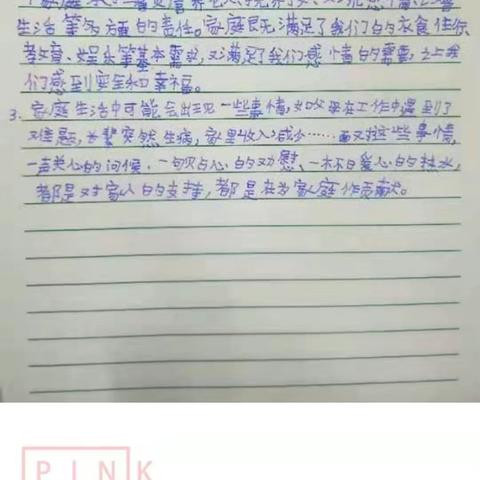 生活等多方面的责任。家庭既满足了我们的衣食住行
教育、娱乐等基本需求,又满足了我们感情的需要,让我
们感到安全和幸福。
3. 家庭生活中可能会出现一些事情,如父母在工作中遇到了
难题,长辈突然生病,家里收入减少……面对这些事情,
一声关心的问候、一句贴心的劝慰、一杯暖心的热水,
都是对家人的支持,都是在为家庭作贡献。
PINK